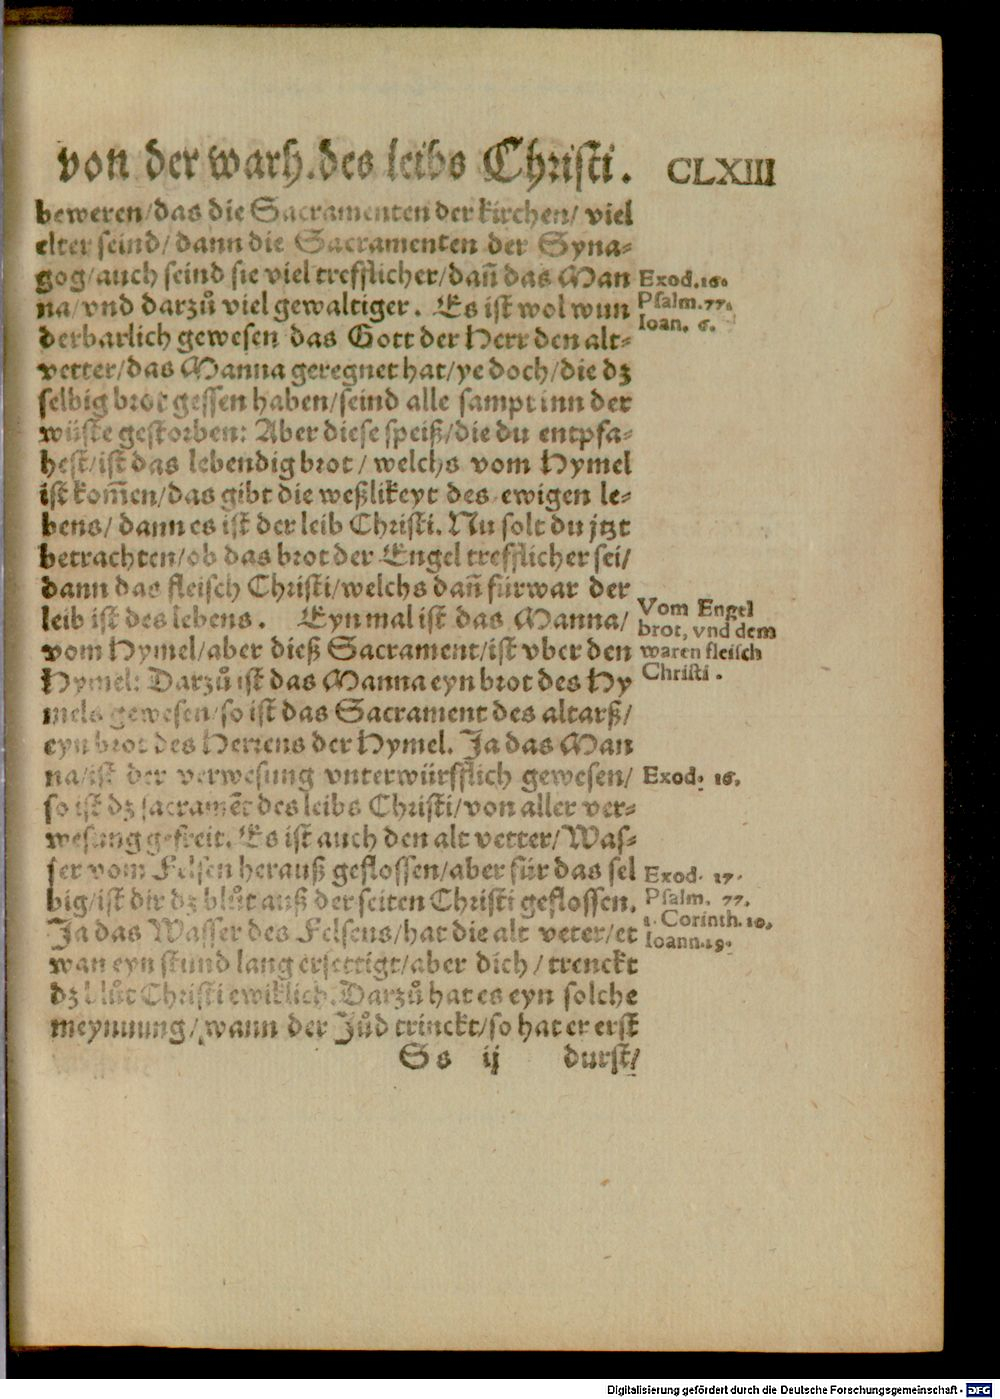 von der warh. des leibs Christi. CLXIII
beweren/das die Sacramenten der kirchen/ viel
elter seind/dann die Sacramenten der Syna-
gog/auch seind sie viel trefflicher/dañ das Man
na/vnd darzů viel gewaltiger. Es ist wol wun
derbarlich gewesen das Gott der Herr den alt-
vetter/das Manna geregnet hat/ye doch/die dz
selbig brot gessen haben/seind alle sampt inn der
wüste gestorben: Aber diese speiß/die du entpfa-
hest/ist das lebendig brot/ welchs vom Hymel
ist kom̃en/das gibt die weßlikeyt des ewigen le-
bens/ dann es ist der leib Christi. Nu solt du jtzt
betrachten/ob das brot der Engel trefflicher sei/
dann das fleisch Christi/welchs dañ fürwar der
leib ist des lebens. Eyn mal ist das Manna/
vom Hymel/aber dieß Sacrament/ist vber den
Hymel: Darzů ist das Manna eyn brot des Hy
mels gewesen/so ist das Sacrament des altarß/
eyn brot des Herrens der Hymel. Ja das Man
na/ist der verwesung vnterwürfflich gewesen/
so ist dz sacramẽt des leibs Christi/von aller ver-
wesung gefreit. Es ist auch den alt vetter/Was-
ser vom Felsen herauß geflossen/aber für das sel
big/ist dir dz blůt auß der seiten Christi geflossen.
Ja das Wasser des Felsens/hat die alt veter/et
wan eyn stund lang ersettigt/aber dich/ trenckt
dz blůt Christi ewiklich. Darzů hat es eyn solche
meynnung/wann der Jůd trinckt/so hat er erst
Ss ij durst/
Exod. 16.
Psalm. 77.
Ioan. 6.
Vom Engel
brot, vnd dem
waren fleisch
Christi.
Exod. 16.
Exod. 17.
Psalm. 77.
1. Corinth. 10.
Ioann. 19.
Digitalisierung gefördert durch die Deutsche Forschungsgemeinschaft - DFG